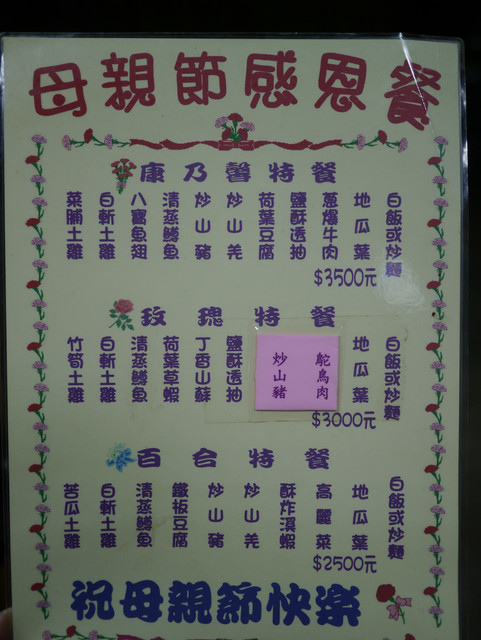 母親節感恩餐
康乃馨特餐
白飯或炒麵
地瓜葉
蔥爆牛肉
鹽酥透抽
荷葉豆腐
炒山羌
炒山豬
清蒸鱒魚
八寶魚翅
白斬土雞
菜脯土雞
$3500元
玫瑰特餐
白飯或炒麵
地瓜葉
鴕鳥肉
炒山豬
鹽酥透抽
丁香山蘇
荷葉草蝦
清蒸鱒魚
白斬土雞
竹筍土雞
$3000元
百合特餐
白飯或炒麵
地瓜葉
高麗菜
酥炸溪蝦
炒山羌
炒山豬
鐵板豆腐
清蒸鱒魚
白斬土雞
苦瓜土雞
$2500元
祝母親節快樂